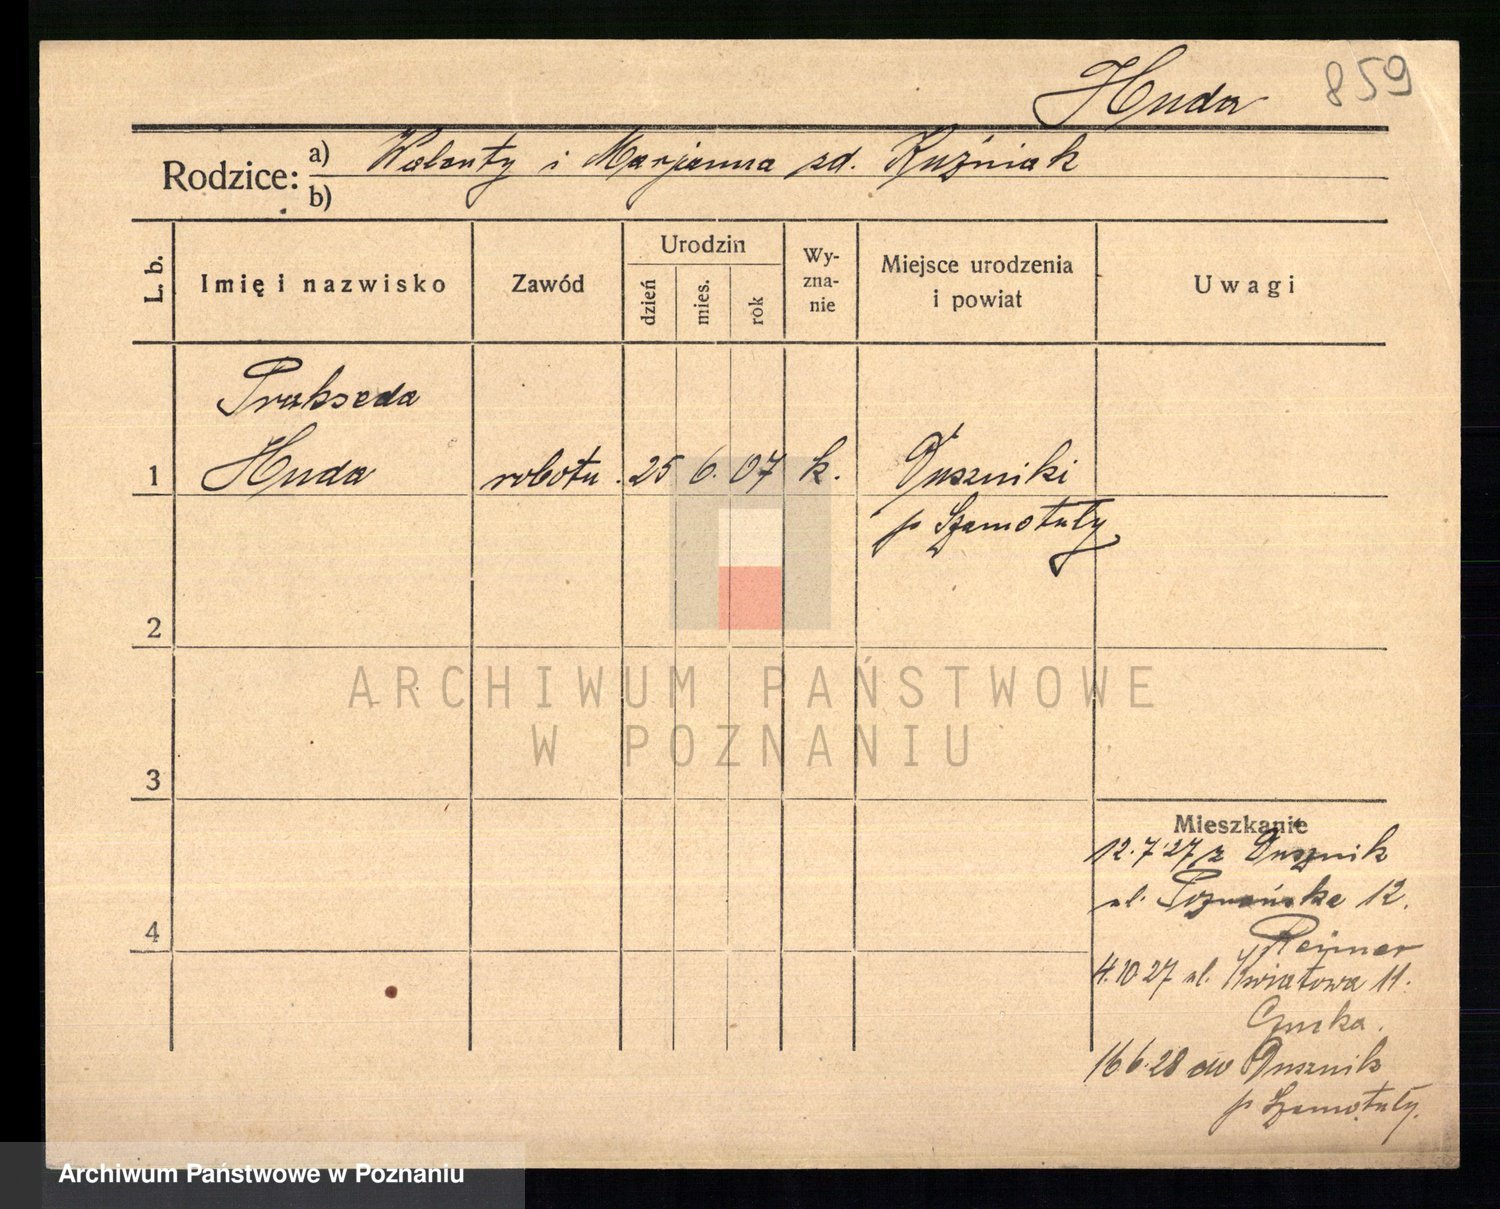 Huda
859
Rodzice: a) Walenty i Marjanna zd. Kuźniak
b)
L. b.
Imię i nazwisko
Zawód
Urodzin
dzień
mies.
rok
Wy-
zna-
nie
Miejsce urodzenia
i powiat
Uwagi
Prakseda
1 Huda robotn. 25 6. 07 k. Duszniki
p Szamotuły
2
ARCHIWUM PAŃSTWOWE
W POZNANIU
3
Mieszkanie
12.7.27 z Dusznik
ul. Poznańska 12.
4
Rejmer
4.10.27 ul. Kwiatowa 11.
16 6.28 do Dusznik
p Szamotuły.
Archiwum Państwowe w Poznaniu